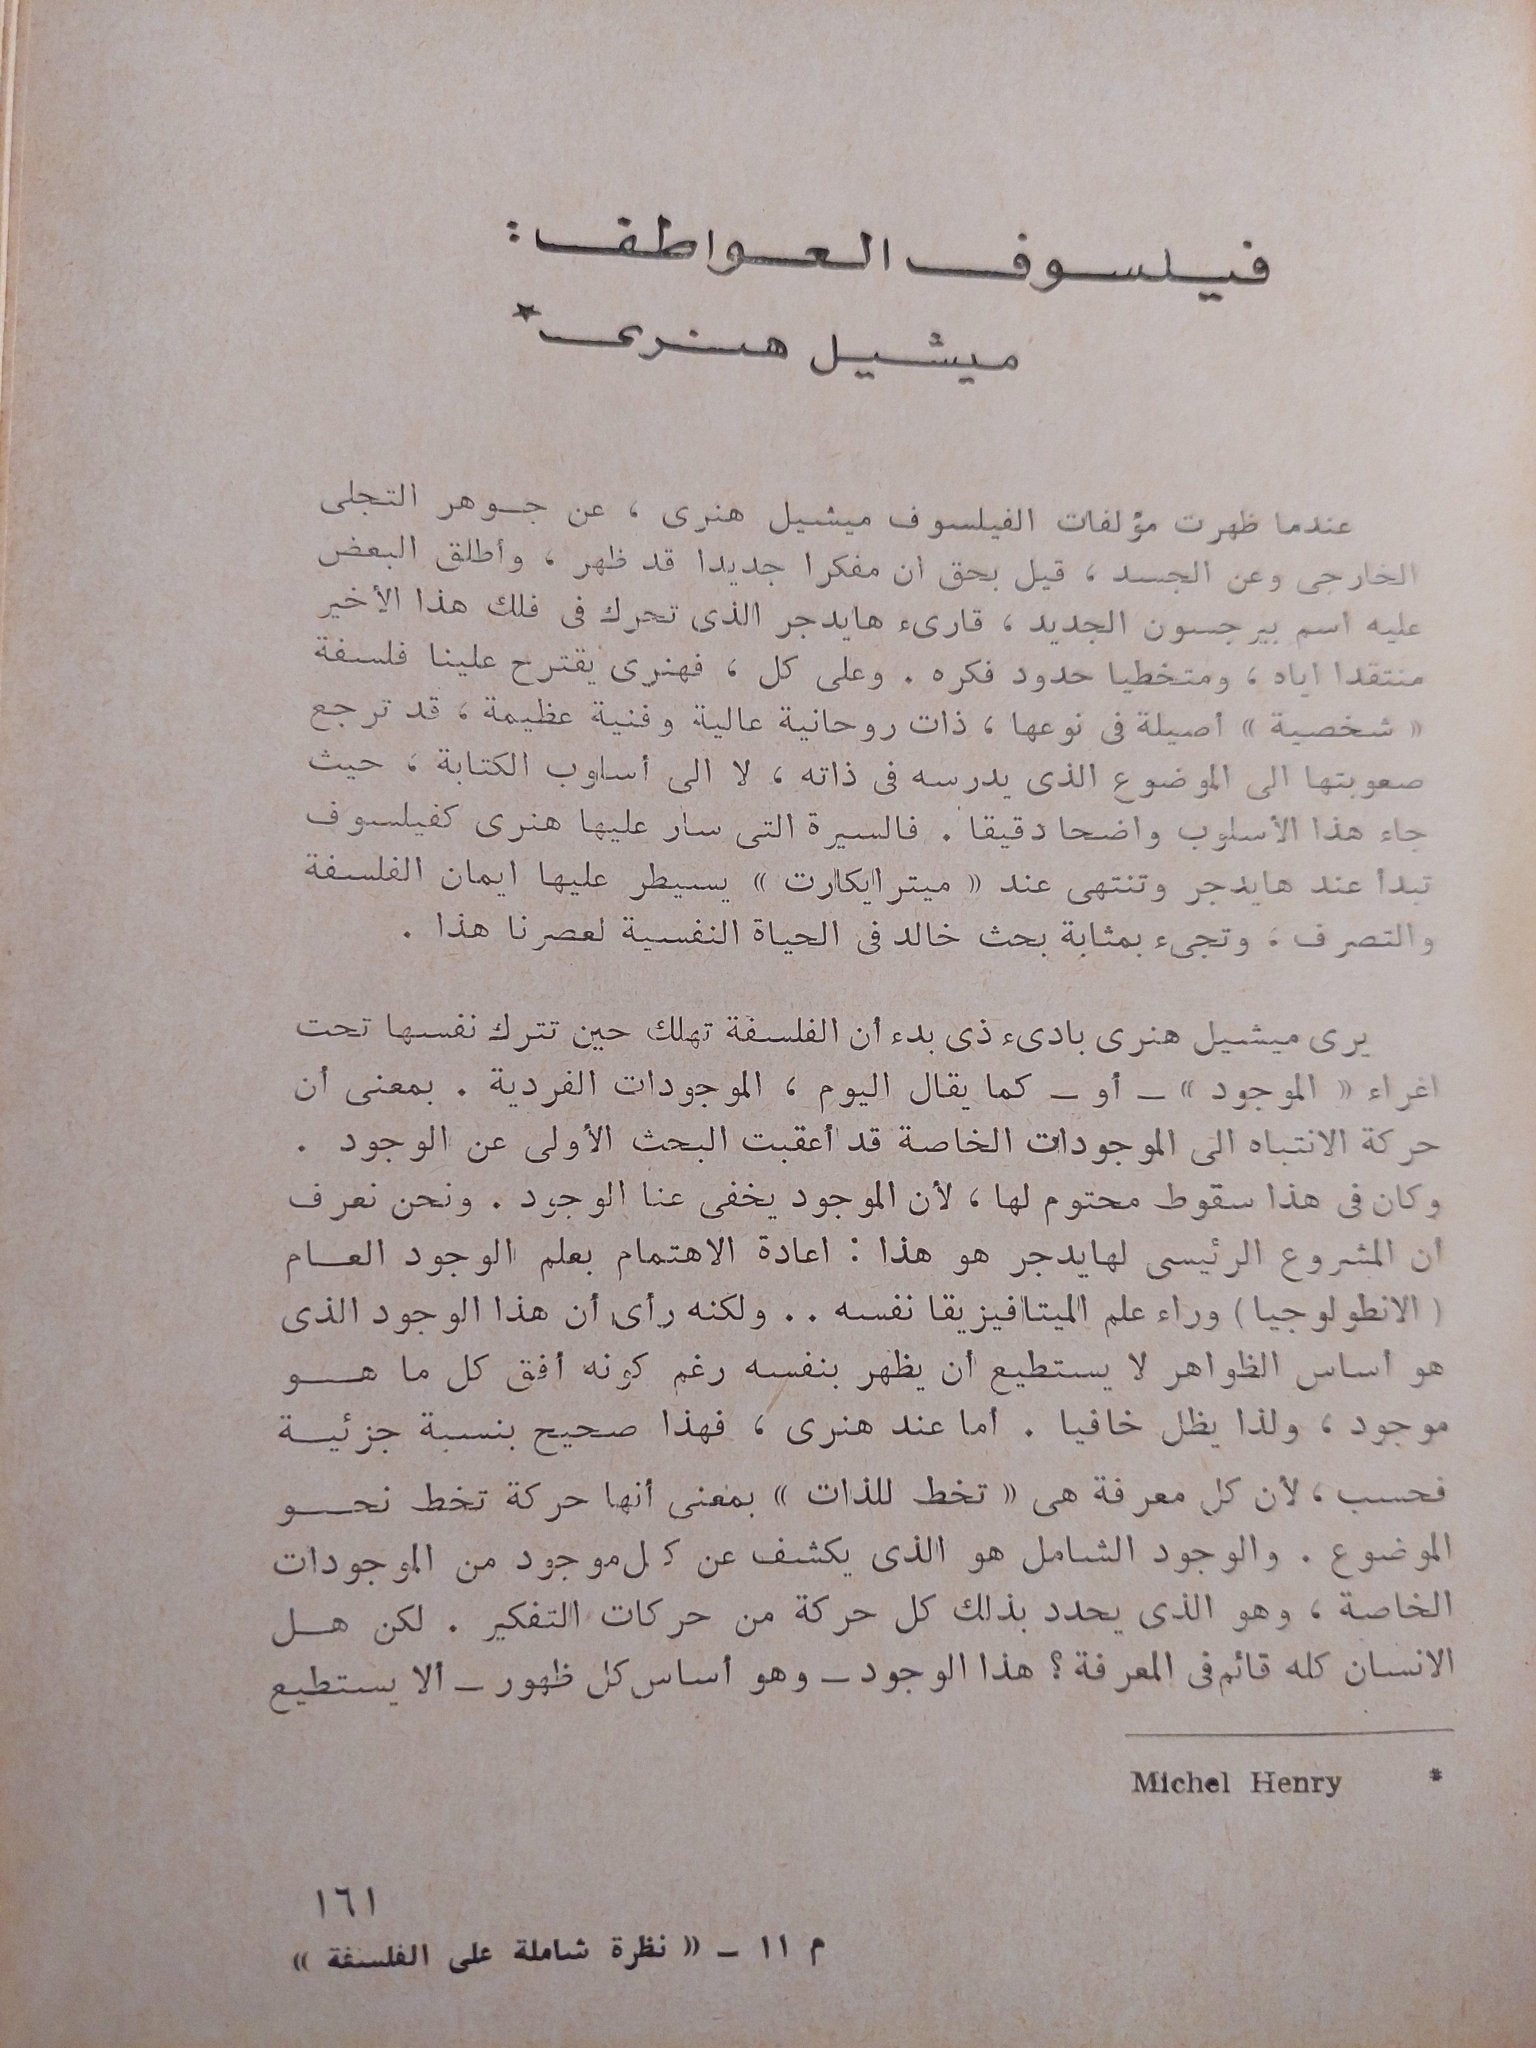 فيلسوف العواطف :
ميشيل هنرى *
عندما ظهرت مؤلفات الفيلسوف ميشيل هنرى ، عن جوهر التجلى
الخارجى وعن الجسد ، قيل بحق ان مفكرا جديدا قد ظهر ، وأطلق البعض
عليه اسم بيرجسون الجديد ، قارىء هايدجر الذى تحرك فى فلك هذا الأخير
منتقدا اياه ، ومتخطيا حدود فكره . وعلى كل ، فهنرى يقترح علينا فلسفة
« شخصية » أصيلة فى نوعها ، ذات روحانية عالية وفنية عظيمة ، قد ترجع
صعوبتها الى الموضوع الذى يدرسه فى ذاته ، لا الى أسلوب الكتابة ، حيث
جاء هذا الأسلوب واضحا دقيقا . فالسيرة التى سار عليها هنرى كفيلسوف
تبدأ عند هايدجر وتنتهى عند « ميترايكارت » يسيطر عليها ايمان الفلسفة
والتصرف ، وتجىء بمثابة بحث خالد فى الحياة النفسية لعصرنا هذا .
يرى ميشيل هنرى بادىء ذى بدء أن الفلسفة تهلك حين تترك نفسها تحت
اغراء « الموجود » ــ أو ــ كما يقال اليوم ، الموجودات الفردية . بمعنى أن
حركة الانتباه الى الموجودات الخاصة قد أعقبت البحث الأولى عن الوجود .
وكان فى هذا سقوط محتوم لها ، لأن الموجود يخفى عنا الوجود . ونحن نعرف
ان المشروع الرئيسى لهايدجر هو هذا : اعادة الاهتمام بعلم الوجود العام
( الانطولوجيا ) وراء علم الميتافيزيقا نفسه . . ولكنه رأى أن هذا الوجود الذى
هو أساس الظواهر لا يستطيع أن يظهر بنفسه رغم كونه أفق كل ما هو
موجود ، ولذا يظل خافيا . أما عند هنرى ، فهذا صحيح بنسبة جزئية
فحسب ، لأن كل معرفة هى « تخط للذات » بمعنى أنها حركة تخط نحو
الموضوع . والوجود الشامل هو الذى يكشف عن كل موجود من الموجودات
الخاصة ، وهو الذى يحدد بذلك كل حركة من حركات التفكير . لكن هل
الانسان كله قائم فى المعرفة ؟ هذا الوجود ــ وهو أساس كل ظهور ــ ألا يستطيع
* Michel Henry
١٦١
م ١١ ــ « نظرة شاملة على الفلسفة »